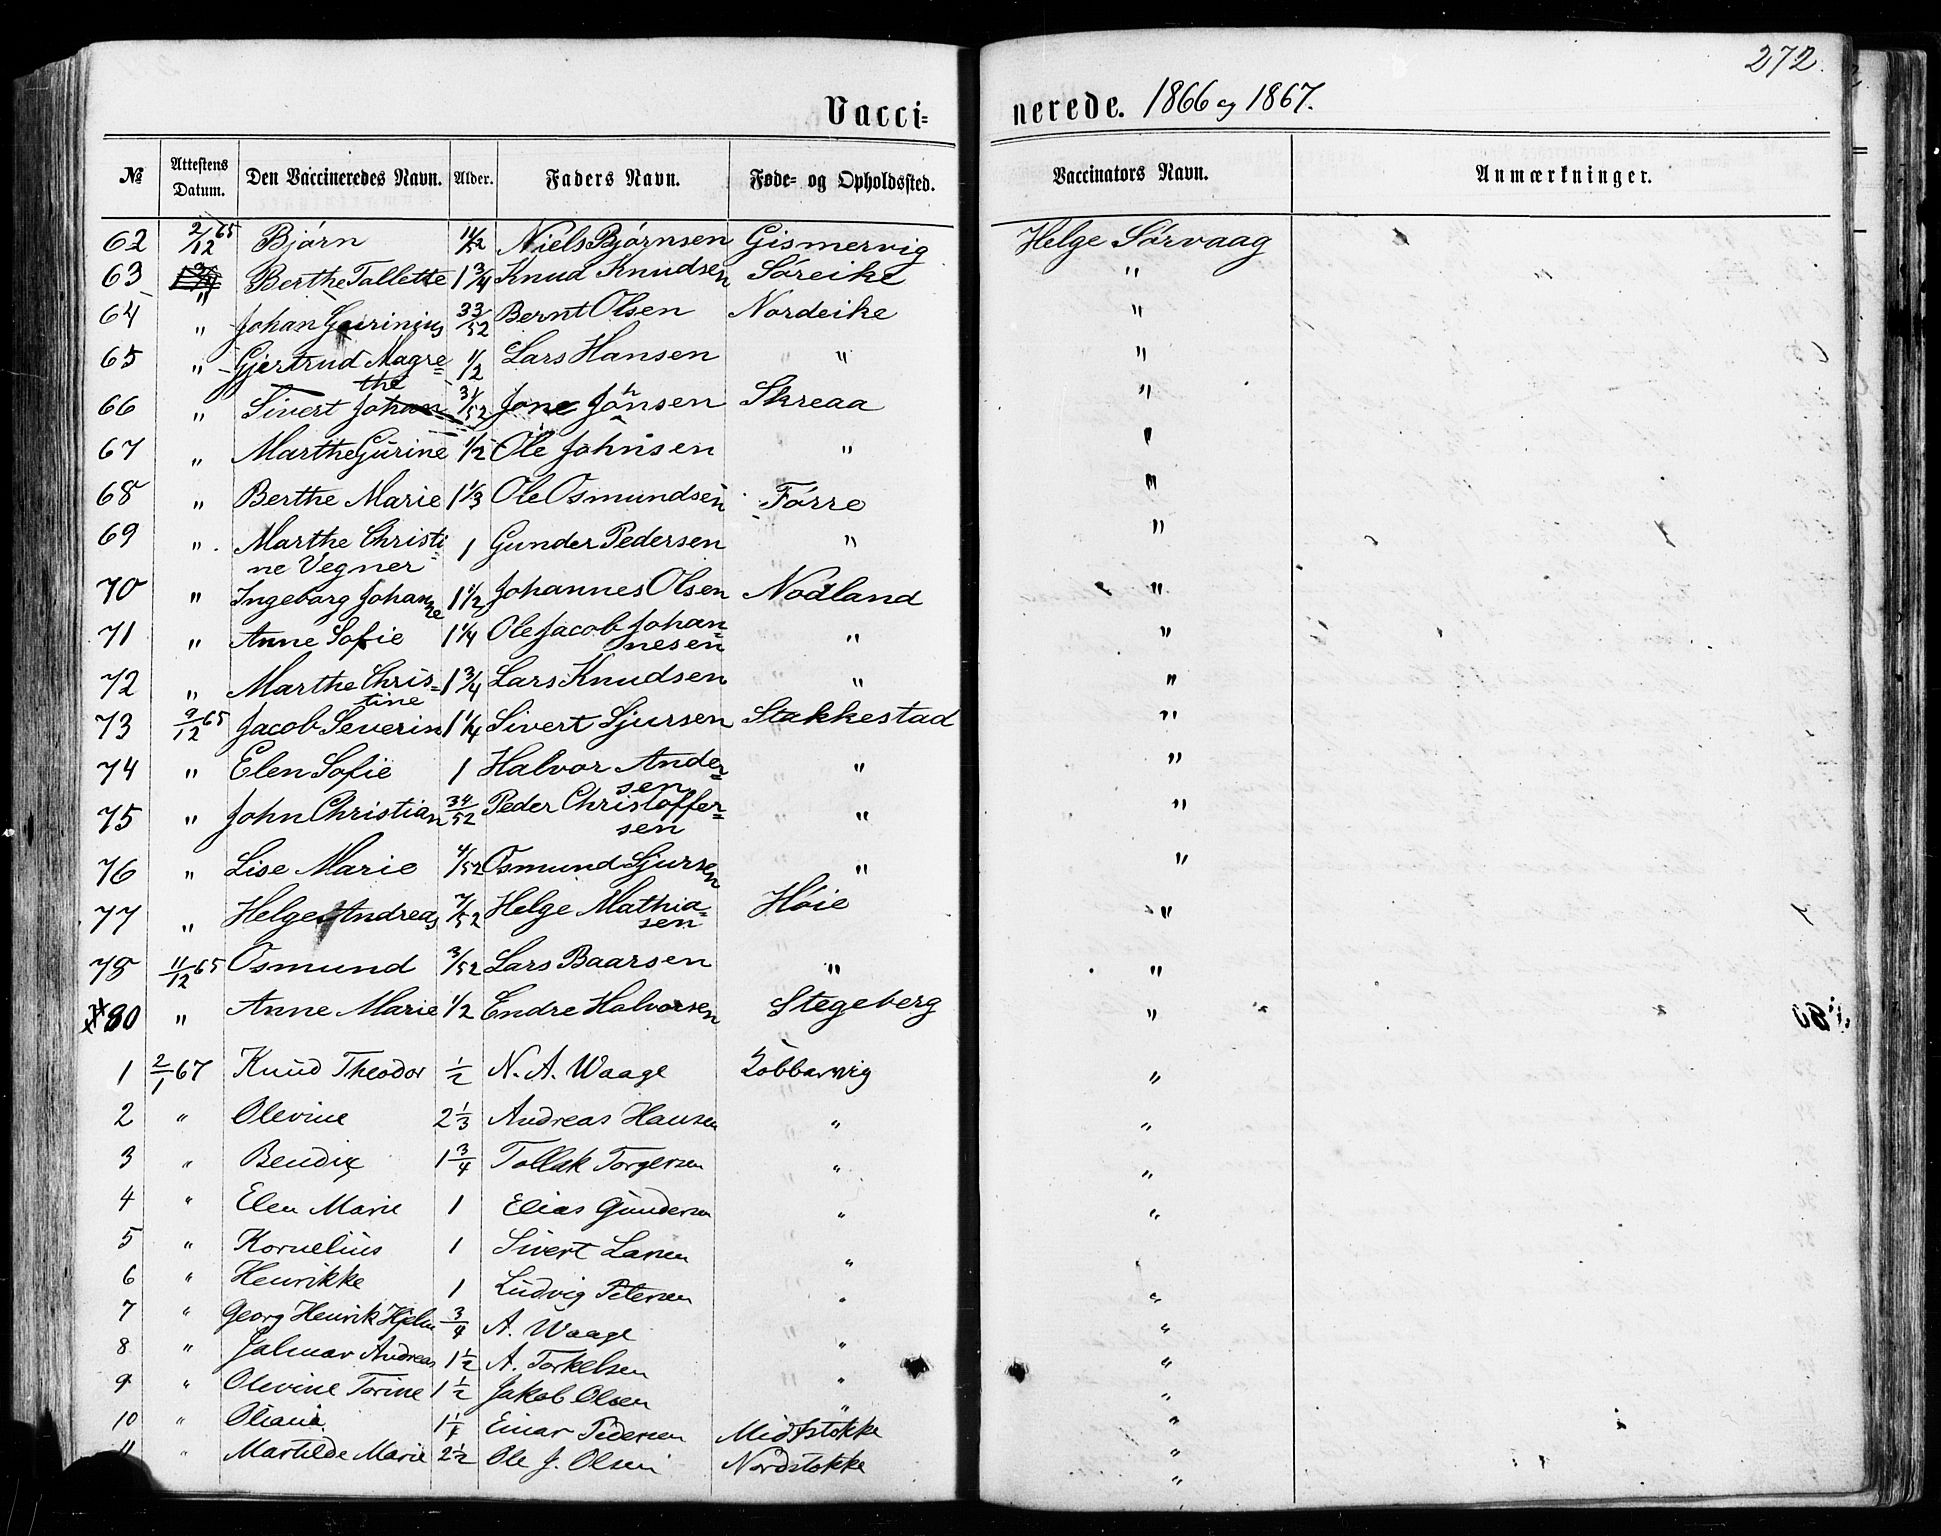 272.
Vacci= nerede. 1866 og 1867.
№ Attestens Datum. Den Vaccineredes Navn. Alder. Faders Navn. Føde= og Opholdssted. Vaccinators Navn. Anmærkninger.
62 2/12 65 Bjørn 11/52 Niels Bjørnsen Gismervig Helge Sørvaag
63 " Berthe Tallette 1 3/4 Knud Knudsen Søreike "
64 " Johan 33/52 Bernt Olsen Nordeike "
65 " Gjertrud Magre= 1/2 Lars Hansen " "
the
66 " Sivert Johan 31/52 Jone Johnsen Skreaa "
67 " Marthe Gurine 1/2 Ole Johnsen " "
68 " Berthe Marie 1 1/3 Ole Osmundsen Førre "
69 " Marthe Christi 1 Gunder Pedersen " "
ne Vegner
70 " Ingeborg Johanne 1 1/2 Johannes Olsen Nodland "
71 " Anne Sofie 1 1/4 Ole Jacob Johan= " "
nesen
72 " Marthe Chris= 1 3/4 Lars Knudsen " "
tine
73 9/12 65 Jacob Severin 1 1/4 Sivert Sjursen Stakkestad "
74 " Elen Sofie 1 Halvor Ander= " "
sen
75 " John Christian 34/52 Peder Christoffer= " "
sen
76 " Lise Marie 4/52 Osmund Sjursen " "
77 " Helge Andreas 7/52 Helge Mathia= Høie "
sen
78 11/12 65 Osmund 3/52 Lars Baarsen " "
80 " Anne Marie 1/2 Endre Halvorsen Stegeberg "
1 2/1 67 Knud Theodor 1/2 N. A. Waage "
2 " Olevine 2 1/3 Andreas Hansen " "
3 " Bendix 1 3/4 Tollak Torgersen " "
4 " Elen Marie 1 Elias Gundersen " "
5 " Kornelius 1 Sivert Larsen "
6 " Henrikke 1 Ludvig Petersen " "
7 " Georg Henrik Hjelm 3/4 A. Waage "
8 " Jalmar Andreas 1 1/2 A. Torkelsen " "
9 " Olevine Torine 1 1/2 Jakob Olsen " "
10 " Einar Pedersen Midtstokke "
11 " Martilde Marie 2 1/2 Ole J. Olsen Nordstokke "
"